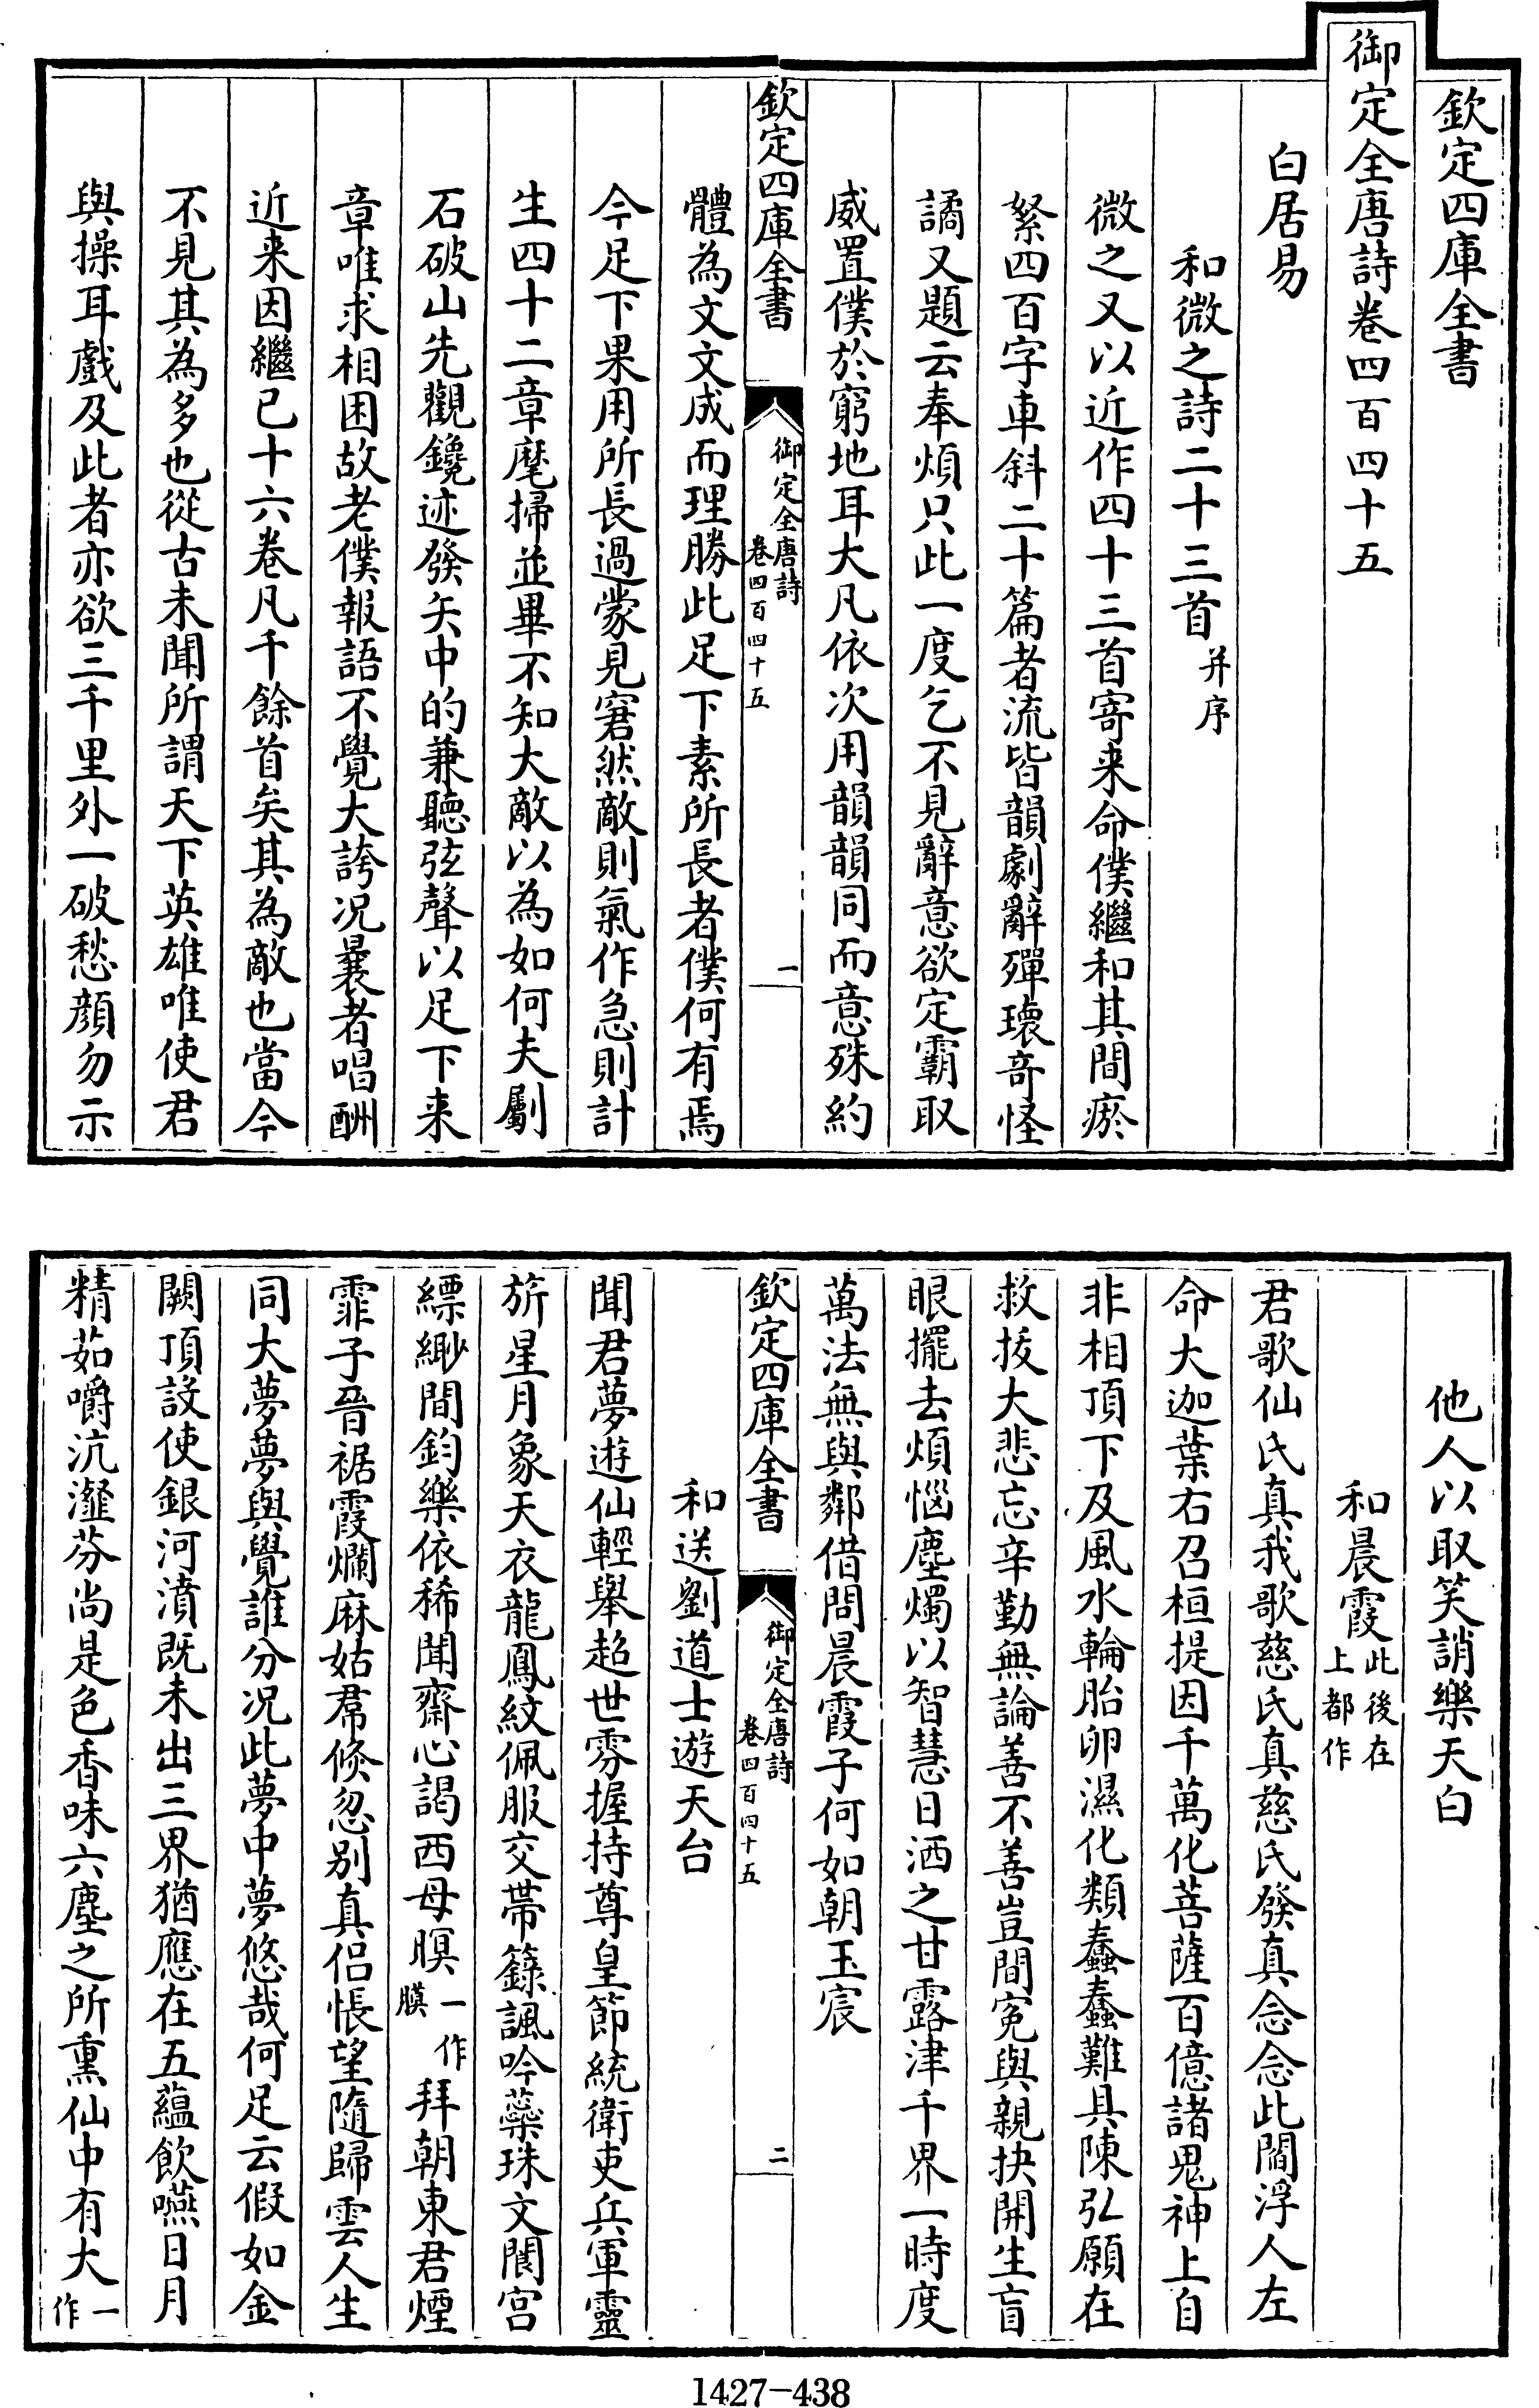 欽定四庫全書
御定全唐詩卷四百四十五
白居易
和微之詩二十三首并序
微之又以近作四十三首寄来命僕繼和其間瘀
絮四百字車斜二十篇者流皆韻劇辭殫瓌奇怪
譎又題云奉煩只此一度乞不見辭意欲定霸取
威置僕於窮地耳大凡依次用韻韻同而意殊約
欽定四庫全書
御定全唐詩
卷四百四十五
一
體為文文成而理勝此足下素所長者僕何有焉
今足下果用所長過蒙見窘然敵則氣作急則計
生四十二章麾掃並畢不知大敵以為如何夫劚
石破山先觀鑱迹發矢中的兼聽弦聲以足下来
章唯求相困故老僕報語不覺大誇况曩者唱酬
近来因繼已十六卷凡千餘首矣其為敵也當今
不見其為多也從古未聞所謂天下英雄唯使君
與操耳戲及此者亦欲三千里外一破愁顔勿示
他人以取笑誚樂天白
和晨霞此後在
上都作
君歌仙氏真我歌慈氏真慈氏發真念念此閻浮人左
命大迦葉右召桓提因千萬化菩薩百億諸鬼神上自
非相頂下及風水輪胎卵濕化類蠢蠢難具陳弘願在
救拔大悲忘辛勤無論善不善豈間寃與親抉開生盲
眼擺去煩惱塵燭以智慧日洒之甘露津千界一時度
萬法無與鄰借問晨霞子何如朝玉宸
欽定四庫全書
御定全唐詩
卷四百四十五
二
和送劉道士遊天台
聞君夢遊仙輕舉超世雰握持尊皇節統衛吏兵軍靈
旂星月象天衣龍鳳紋佩服交帶籙諷吟蘂珠文閬宫
縹緲間鈞樂依稀聞齋心謁西母暝一作
瞙拜朝東君煙
霏子晉裾霞爛麻姑帬倐忽别真侣悵望隨歸雲人生
同大夢夢與覺誰分况此夢中夢悠哉何足云假如金
闕頂設使銀河濆既未出三界猶應在五蘊飲嚥日月
精茹嚼沆瀣芬尚是色香味六塵之所熏仙中有大一
作
1427-438